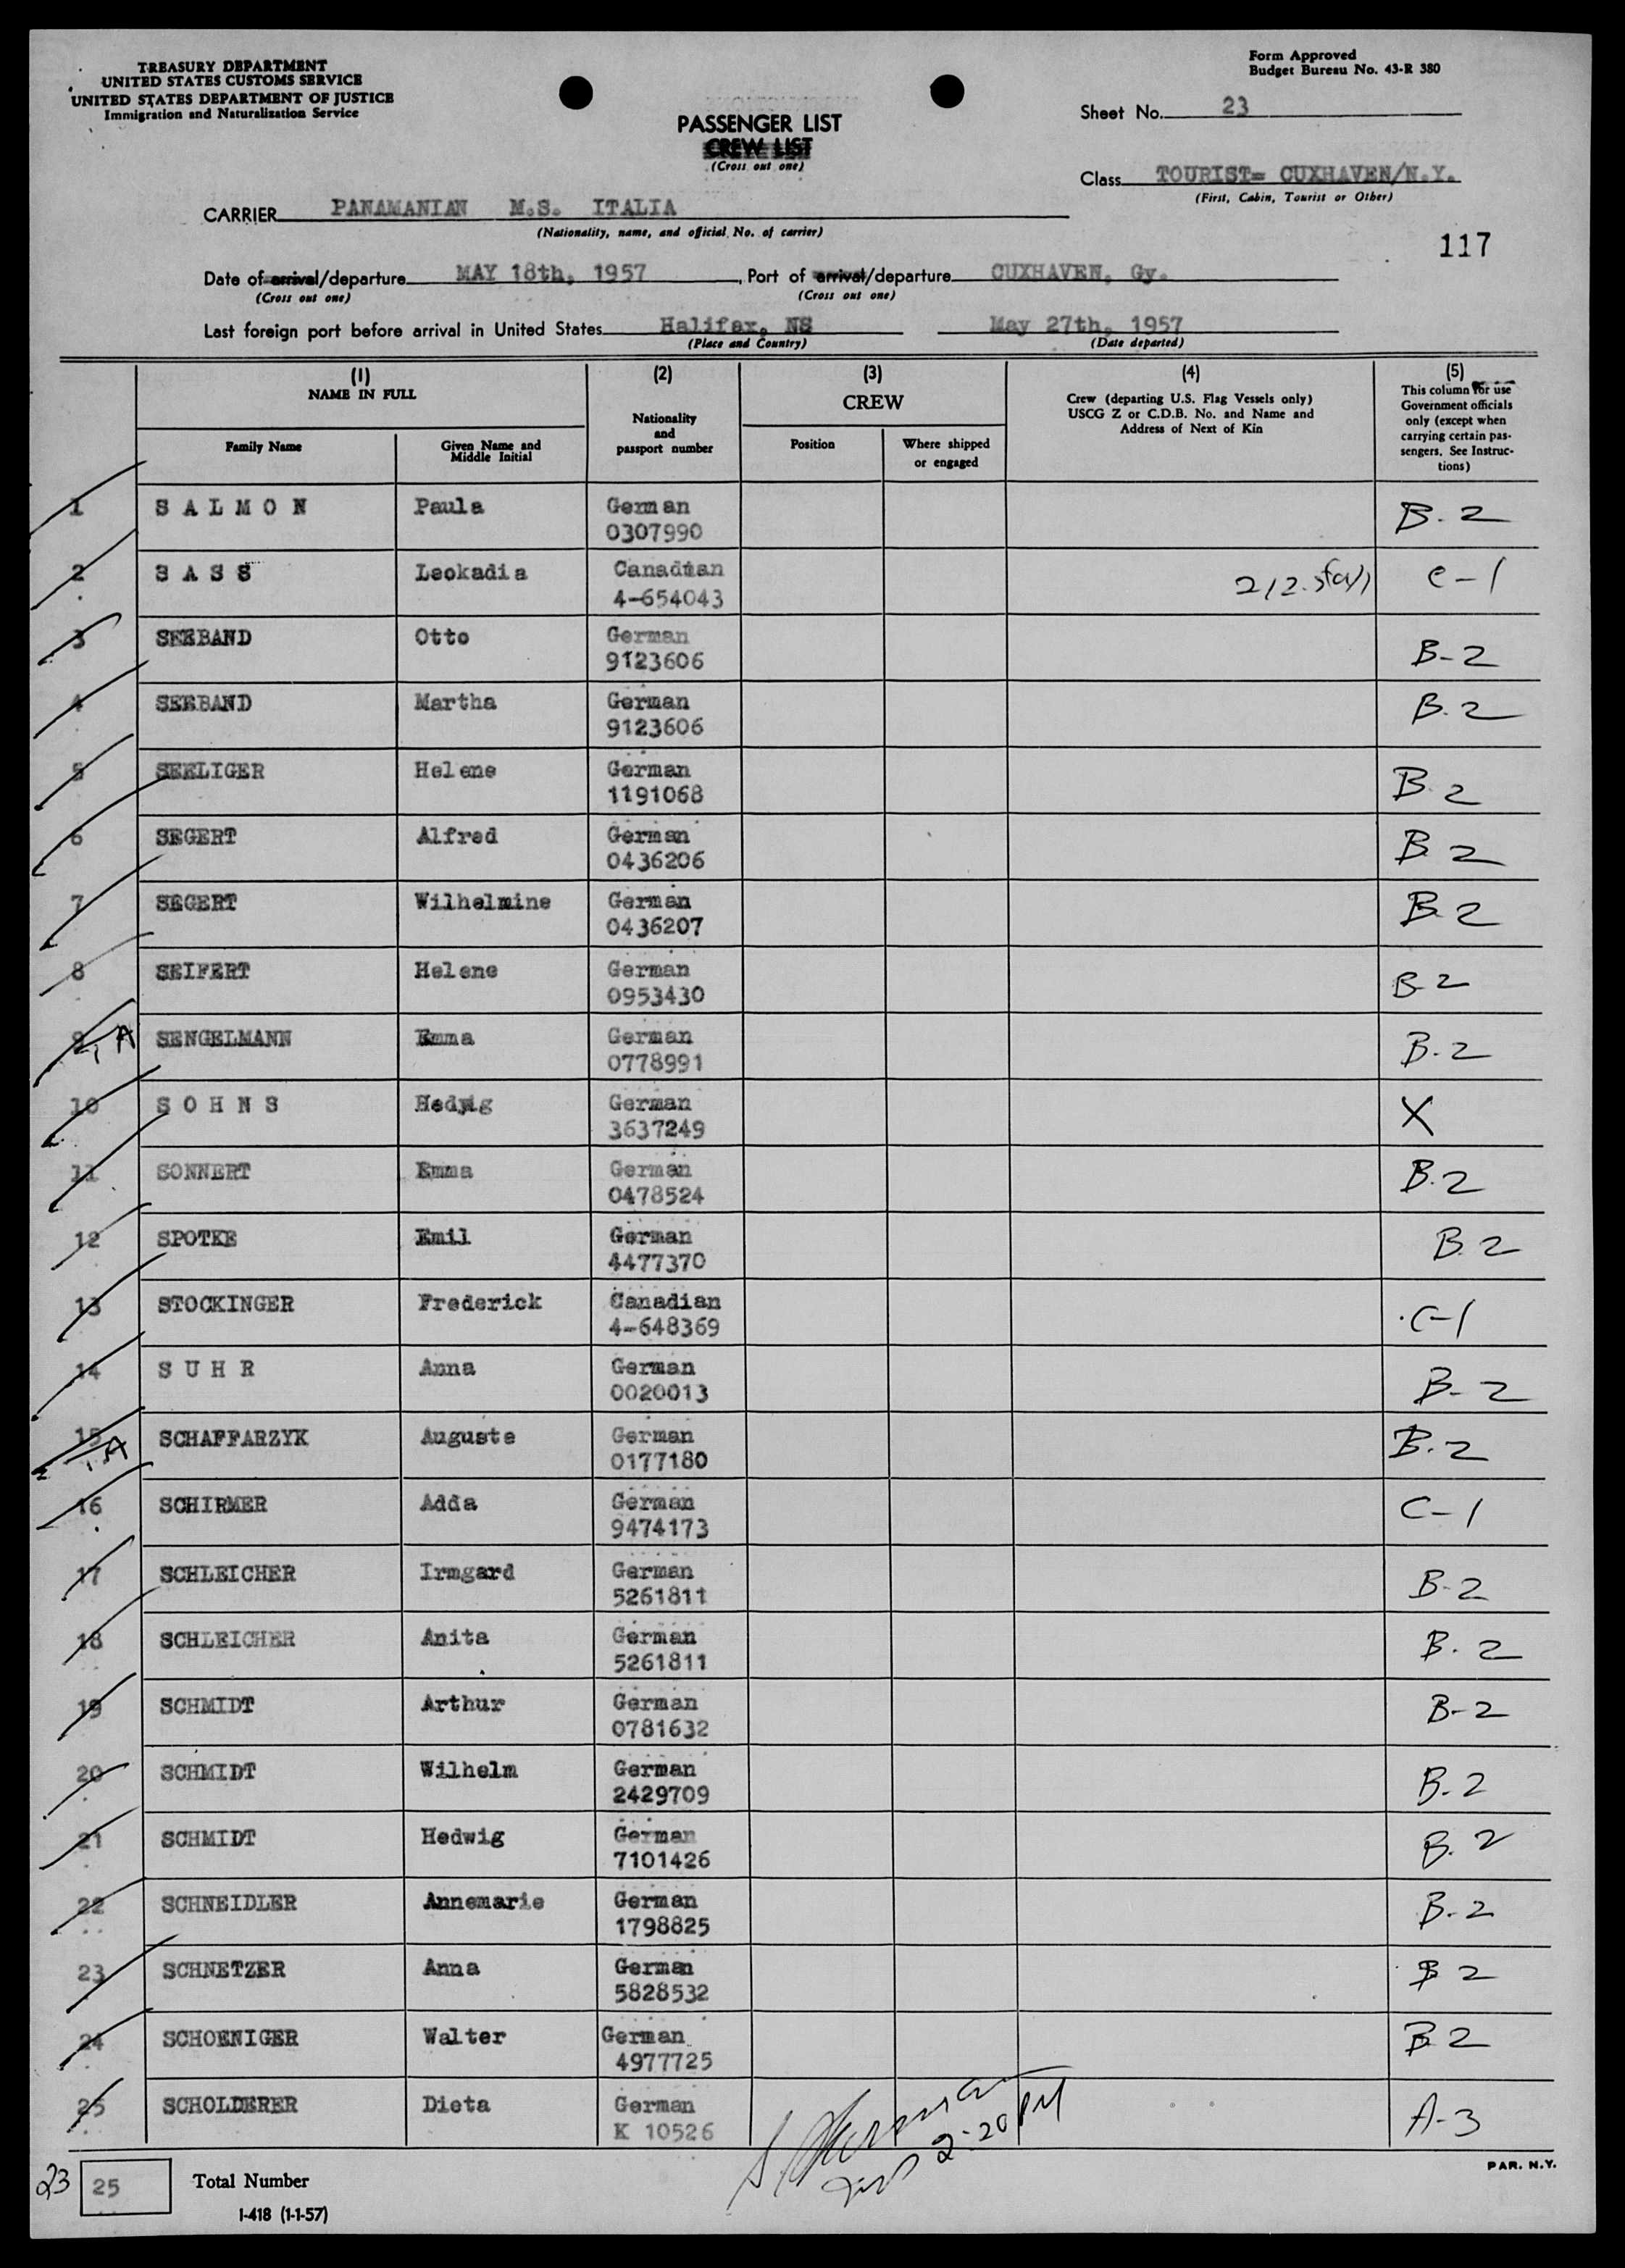 TREASURY DEPARTMENT
UNITED STATES CUSTOMS SERVICE
UNITED STATES DEPARTMENT OF JUSTICE
Immigration and Naturalization Service
Form Approved
Budget Bureau No. 43-R 380
PASSENGER LIST
CREW LIST
(Cross out one)
Sheet No. 23
Class TOURIST= CUXHAVEN/N.Y.
(First, Cabin, Tourist or Other)
CARRIER PANAMANIAN M.S. ITALIA
(Nationality, name, and official No. of carrier)
117
Date of arrival/departure MAY 18th, 1957, Port of arrival/departure CUXHAVEN, Gy.
(Cross out one) (Cross out one)
Last foreign port before arrival in United States Halifax, NS May 27th, 1957
(Place and Country) (Date departed)
(1)
NAME IN FULL
Family Name
Given Name and
Middle Initial
(2)
Nationality
and
passport number
(3)
CREW
Position
Where shipped
or engaged
(4)
Crew (departing U.S. Flag Vessels only)
USCG Z or C.D.B. No. and Name and
Address of Next of Kin
(5)
This column for use
Government officials
only (except when
carrying certain pas-
sengers. See Instruc-
tions)
1 S A L M O N Paula German B-2
0307990
2 S A S S Leokadia Canadian C-1
4-654043
3 SEEBAND Otto German B-2
9123606
4 SEEBAND Martha German B-2
9123606
5 SEELIGER Helene German B-2
1191068
6 SEGERT Alfred German B 2
0436206
7 SEGERT Wilhelmine German B-2
0436207
8 SEIFERT Helene German B-2
0953430
9 A SENGELMANN Emma German B-2
0778991
10 S O H N S Hedwig German X
3637249
11 SONNERT Emma German B-2
0478524
12 SPOTKE Emil German B 2
4477370
13 STOCKINGER Frederick Canadian C-1
4-648369
14 S U H R Anna German B-2
0020013
15 A SCHAFFARZYK Auguste German B-2
0177180
16 SCHIRMER Adda German C-1
9474173
17 SCHLEICHER Irmgard German B-2
5261811
18 SCHLEICHER Anita German B-2
5261811
19 SCHMIDT Arthur German B-2
0781632
20 SCHMIDT Wilhelm German B-2
2429709
21 SCHMIDT Hedwig German B-2
7101426
22 SCHNEIDLER Annemarie German B-2
1798825
23 SCHNETZER Anna German B 2
5828532
24 SCHOENIGER Walter German B 2
4977725
25 SCHOLDERER Dieta German A-3
K 10526
2:20 PM
23 25 Total Number
I-418 (1-1-57)
PAR. N.Y.